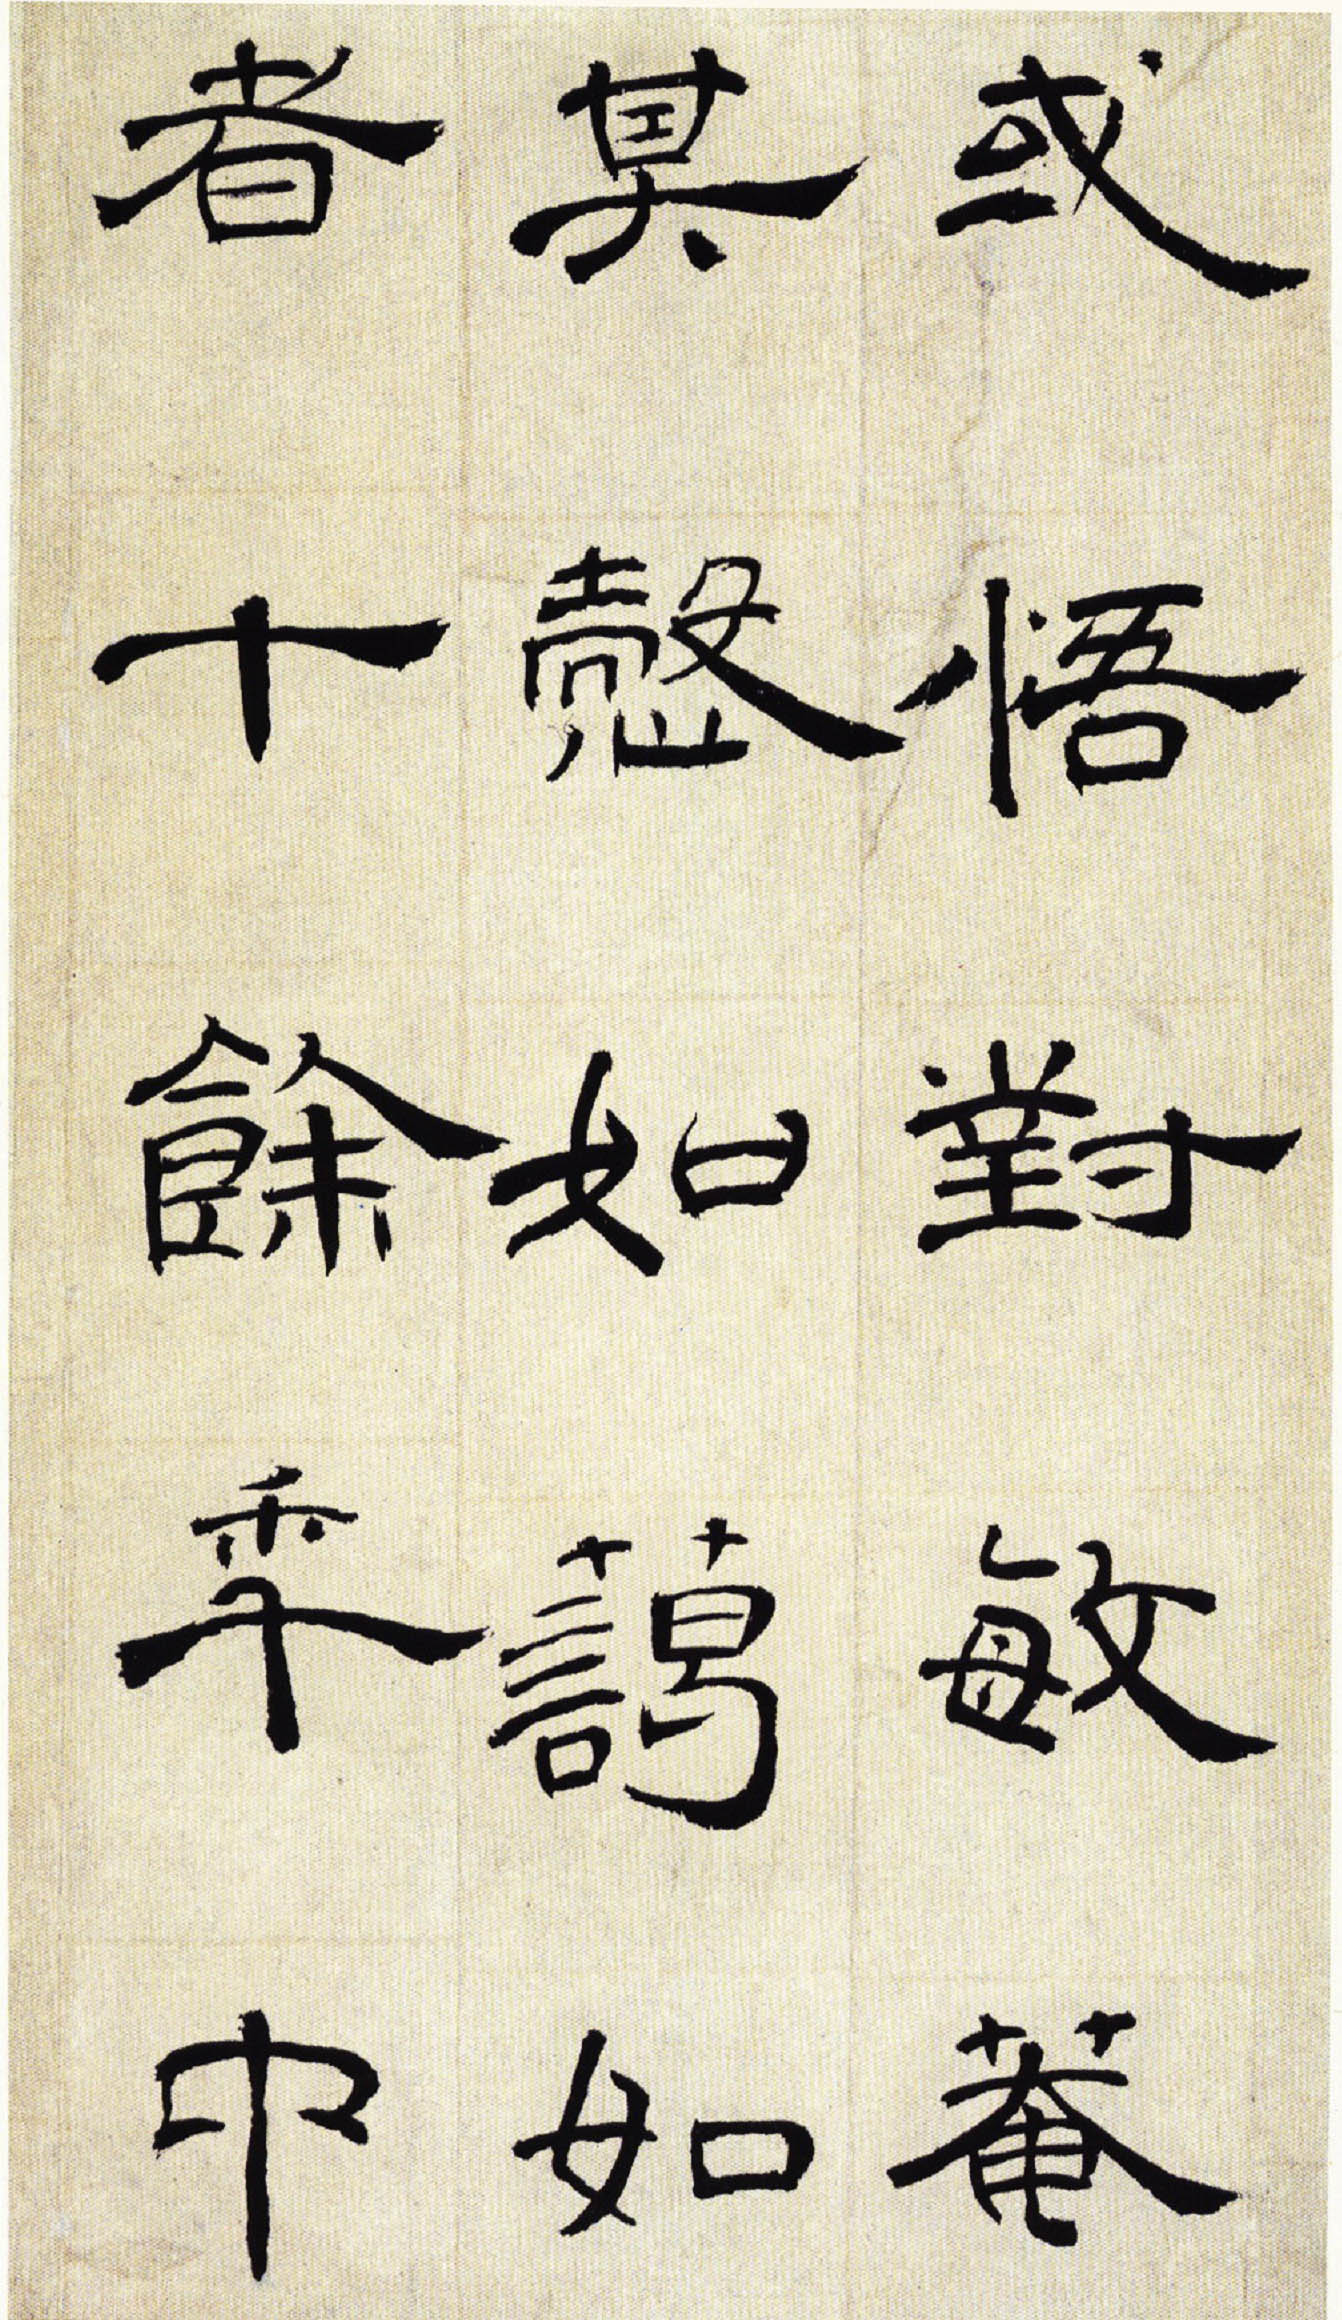 或悟對敏菴
其愨如藹如
者十餘秊中